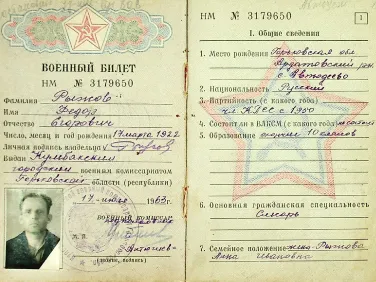 ВОЕННЫЙ БИЛЕТ
НМ № 3179650
Фамилия Рыжов
Имя Федор
Отчество Егорович
Число, месяц и год рождения 17 марта 1922
Личная подпись владельца
Выдан Кулебакским
городским военным комиссариатом
Горьковской области (республики)
17 июля 1963 г.
ВОЕННЫЙ КОМИССАР
М. П.
(звание, подпись)
НМ № 3179650
1
I. Общие сведения
1. Место рождения Горьковская обл
Ардатовский
с Автодеево
2. Национальность Русский
3. Партийность (с какого года)
чл КПСС с 1950
4. Состоит ли в ВЛКСМ (с какого года) не состоит
5. Образование окончил 10 классов
6. Основная гражданская специальность
Слесарь
7. Семейное положение жена-Рыжова
Анна Ивановна